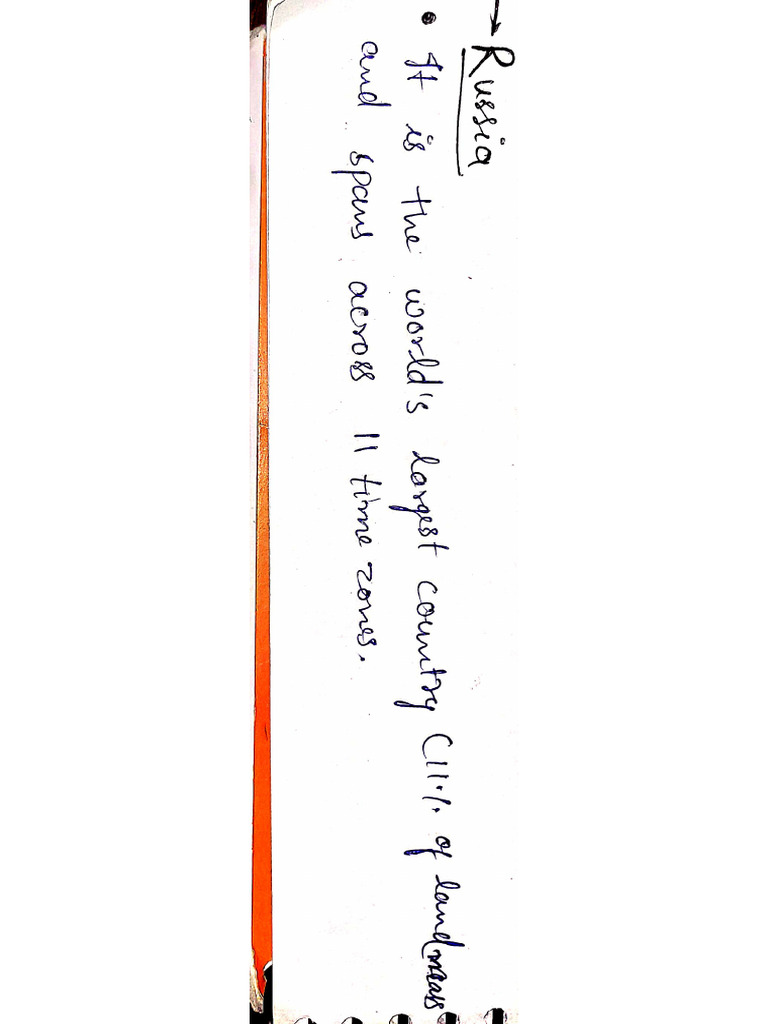 → Russia
• It is the world's largest country (11% of landmass
and spans across 11 time zones.